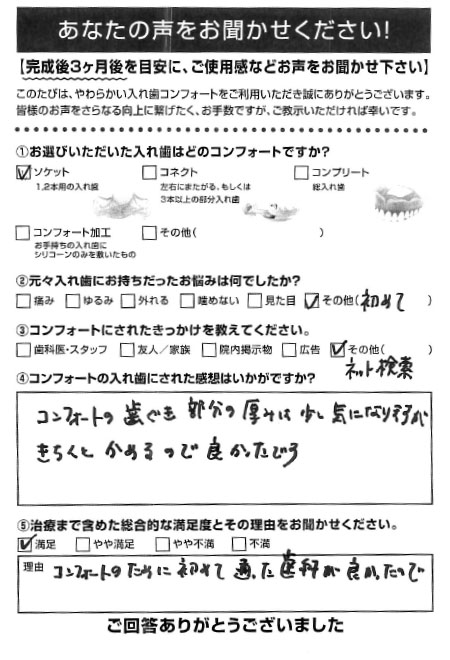 あなたの声をお聞かせください!
【完成後3ヶ月後を目安に、ご使用感などお声をお聞かせ下さい】
このたびは、やわらかい入れ歯コンフォートをご利用いただき誠にありがとうございます。
皆様のお声をさらなる向上に繋げたく、お手数ですが、ご教示いただければ幸いです。
①お選びいただいた入れ歯はどのコンフォートですか?
☑ソケット □コネクト □コンプリート
1,2本用の入れ歯 左右にまたがる、もしくは 総入れ歯
3本以上の部分入れ歯
□コンフォート加工 □その他( )
お手持ちの入れ歯に
シリコーンのみを敷いたもの
②元々入れ歯にお持ちだったお悩みは何でしたか?
□痛み □ゆるみ □外れる □噛めない □見た目 ☑その他(初めて )
③コンフォートにされたきっかけを教えてください。
□歯科医・スタッフ □友人/家族 □院内掲示物 □広告 ☑その他( )
ネット検索
④コンフォートの入れ歯にされた感想はいかがですか?
コンフォートの歯ぐき部分の厚みは少し気になりますが
きちんと かめるので良かったです
⑤治療まで含めた総合的な満足度とその理由をお聞かせください。
☑満足 □やや満足 □やや不満 □不満
理由 コンフォートのために初めて通った歯科が良かったので
ご回答ありがとうございました